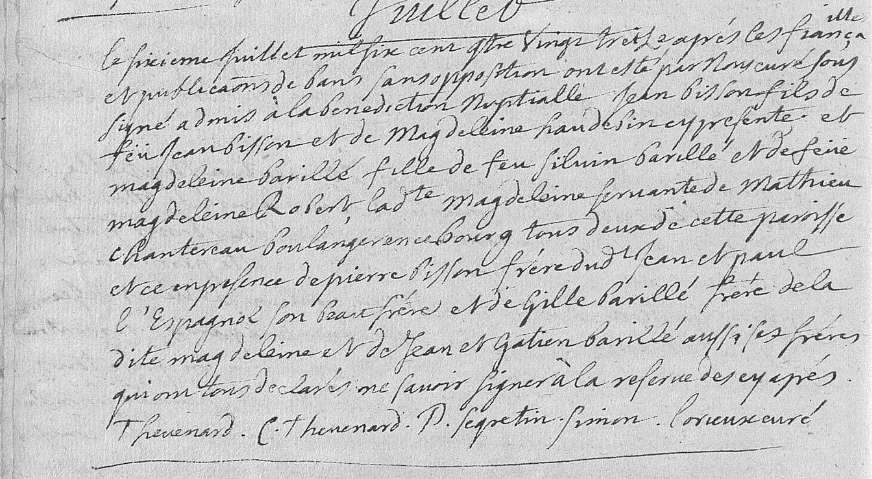 Juillet
Le sixieme Juillet mil six cent qtre Vingt treize aprés les fiança
ille
et publicaõns de bans sans opposition ont esté par Nous curé sous
signé admis à la benediction Nuptialle Jean bisson fils de
feü Jean bisson et de Magdeleine haudebin cy presente et
magdeleine barillé fille de feu silvin barillé et de feüe
magdeleine Robert, ladte Magdeleine servante de Mathieu
chantereau boulanger en ce bourg tous deux de cette paroisse
et ce en presence de pierre bisson frere dudt Jean et paul
l'Espagnol son beau frére et de Gille barillé frére de la
dite magdeleine et de Jean et Gatien barillé aussi ses fréres
qui ont tous declarés ne savoir signer à la reserve des cy aprés.
Thevenard. C. Thevenard. P. segretin. simon. Lorieux curé